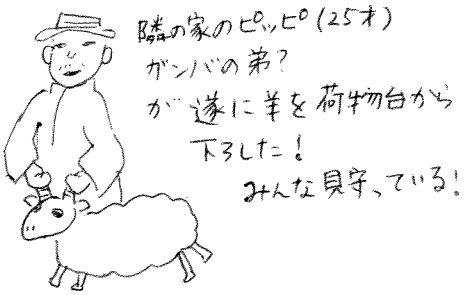 隣の家のピッピ(25才)
ガンバの弟?
が遂に羊を荷物台から
下ろした!
みんな見守っている!